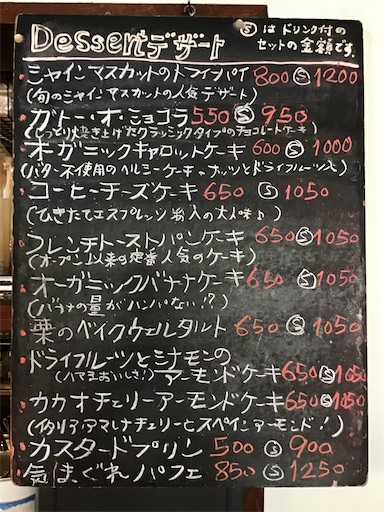 Dessertデザート
Ⓢはドリンク付の
セットの金額です。
シャインマスカットのトライフルパイ 800 Ⓢ 1200
(旬のシャインマスカットの人気デザート)
ガトー・オ・ショコラ 550 Ⓢ 950
(しっとり焼き上げたクラッシックタイプのチョコレートケーキ)
オーガニックキャロットケーキ 600 Ⓢ 1000
(バター不使用のヘルシーケーキ ナッツとドライフルーツ入)
コーヒーチーズケーキ 650 Ⓢ 1050
(ひきたてエスプレッソ 入の大人味♪)
フレンチトーストパンケーキ 650 Ⓢ 1050
(オープン以来の定番人気のケーキ)
オーガニックバナナケーキ 650 Ⓢ 1050
(バナナの量がハンパない!?)
栗のベイクウェルタルト 650 Ⓢ 1050
ドライフルーツとシナモンの
アーモンドケーキ 650 Ⓢ 1050
カカオチェリーアーモンドケーキ 650 Ⓢ 1050
(イタリアアマレナチェリーとスペインアーモンド!)
カスタードプリン 500 Ⓢ 900
気まぐれパフェ 850 Ⓢ 1250